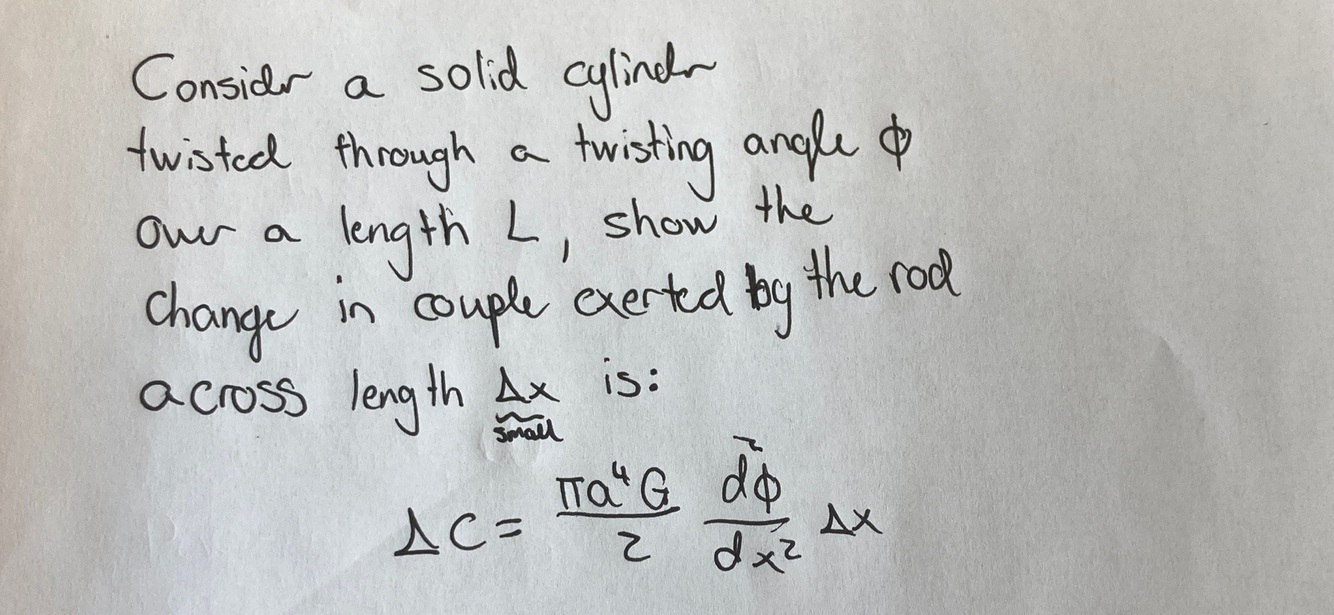 Consider a solid cylinder
twisted through a twisting angle ϕ
over a length L, show the
change in couple exerted by the rod
across length Δx is:
small
ΔC = πa⁴G/2 d²ϕ/dx² Δx